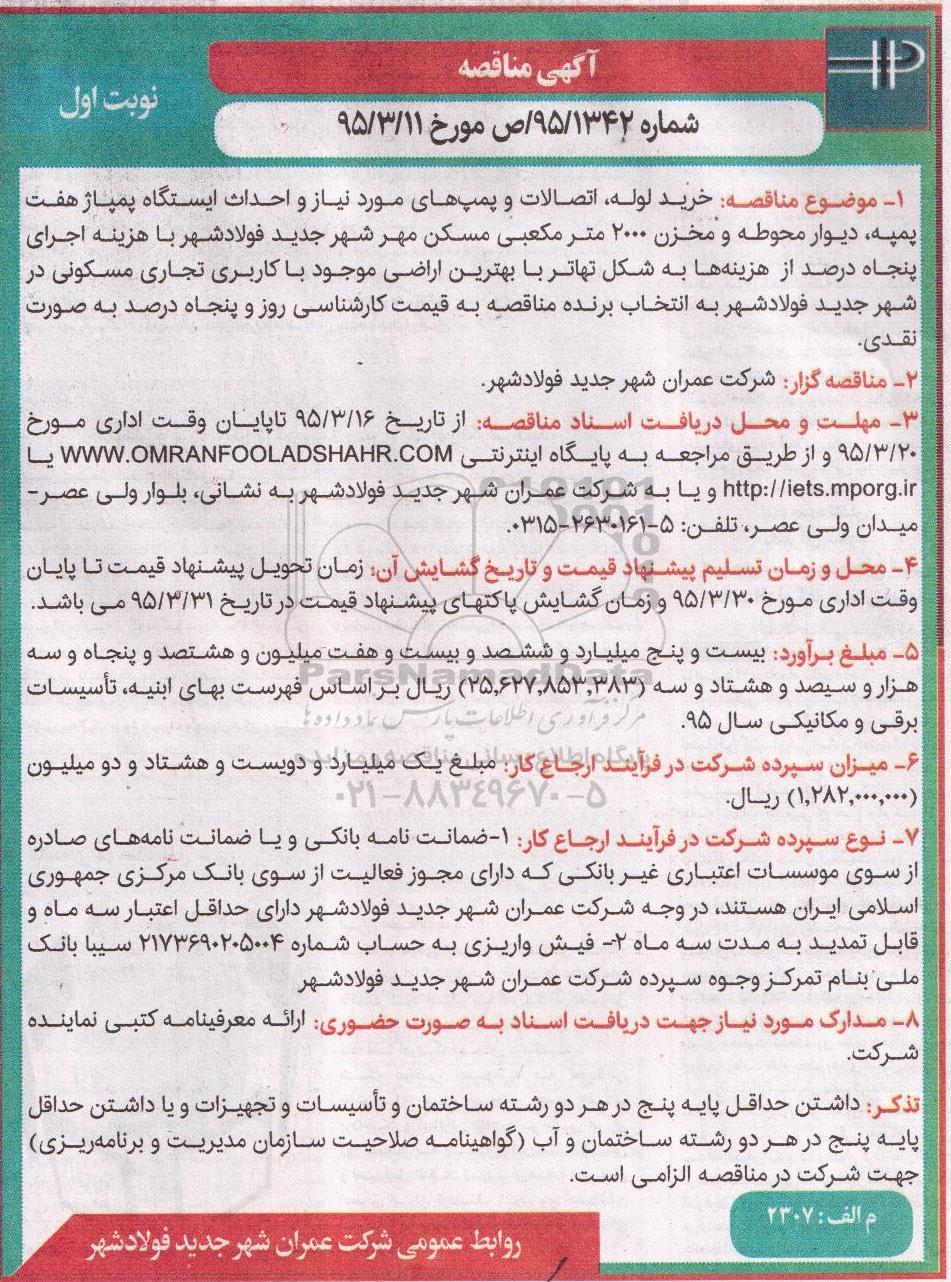 آگهی مناقصه
نوبت اول
شماره ۹۵/۱۳۴۲/ص مورخ ۹۵/۳/۱۱
۱- موضوع مناقصه: خرید لوله، اتصالات و پمپ‌های مورد نیاز و احداث ایستگاه پمپاژ هفت
پمپه، دیوار محوطه و مخزن ۲۰۰۰ متر مکعبی مسکن مهر شهر جدید فولادشهر با هزینه اجرای
پنجاه درصد از هزینه‌ها به شکل تهاتر با بهترین اراضی موجود با کاربری تجاری مسکونی در
شهر جدید فولادشهر به انتخاب برنده مناقصه به قیمت کارشناسی روز و پنجاه درصد به صورت
نقدی.
۲- مناقصه گزار: شرکت عمران شهر جدید فولادشهر.
۳- مهلت و محل دریافت اسناد مناقصه: از تاریخ ۹۵/۳/۱۶ تاپایان وقت اداری مورخ
۹۵/۳/۲۰ و از طریق مراجعه به پایگاه اینترنتی WWW.OMRANFOOLADSHAHR.COM یا
http://iets.mporg.ir و یا به شرکت عمران شهر جدید فولادشهر به نشانی، بلوار ولی عصر-
میدان ولی عصر، تلفن: ۵-۲۶۳۰۱۶۱-۰۳۱۵.
۴- محل و زمان تسلیم پیشنهاد قیمت و تاریخ گشایش آن: زمان تحویل پیشنهاد قیمت تا پایان
وقت اداری مورخ ۹۵/۳/۳۰ و زمان گشایش پاکتهای پیشنهاد قیمت در تاریخ ۹۵/۳/۳۱ می باشد.
۵- مبلغ برآورد: بیست و پنج میلیارد و ششصد و بیست و هفت میلیون و هشتصد و پنجاه و سه
هزار و سیصد و هشتاد و سه (۲۵,۶۲۷,۸۵۳,۳۸۳) ریال بر اساس فهرست بهای ابنیه، تأسیسات
برقی و مکانیکی سال ۹۵.
۶- میزان سپرده شرکت در فرآیند ارجاع کار: مبلغ یک میلیارد و دویست و هشتاد و دو میلیون
(۱,۲۸۲,۰۰۰,۰۰۰) ریال.
۷- نوع سپرده شرکت در فرآیند ارجاع کار: ۱-ضمانت نامه بانکی و یا ضمانت نامه‌های صادره
از سوی موسسات اعتباری غیر بانکی که دارای مجوز فعالیت از سوی بانک مرکزی جمهوری
اسلامی ایران هستند، در وجه شرکت عمران شهر جدید فولادشهر دارای حداقل اعتبار سه ماه و
قابل تمدید به مدت سه ماه ۲- فیش واریزی به حساب شماره ۲۱۷۳۶۹۰۲۰۵۰۰۴ سیبا بانک
ملی بنام تمرکز وجوه سپرده شرکت عمران شهر جدید فولادشهر
۸- مدارک مورد نیاز جهت دریافت اسناد به صورت حضوری: ارائه معرفینامه کتبی نماینده
شرکت.
تذکر: داشتن حداقل پایه پنج در هر دو رشته ساختمان و تأسیسات و تجهیزات و یا داشتن حداقل
پایه پنج در هر دو رشته ساختمان و آب (گواهینامه صلاحیت سازمان مدیریت و برنامه‌ریزی)
جهت شرکت در مناقصه الزامی است.
م الف: ۲۳۰۷
روابط عمومی شرکت عمران شهر جدید فولادشهر
ParsNamadData
مرکز فرآوری اطلاعات پارس نماد داده ها
پایگاه اطلاع رسانی مناقصه و مزایده
۰۲۱-۸۸۳۴۹۶۷۰-۵